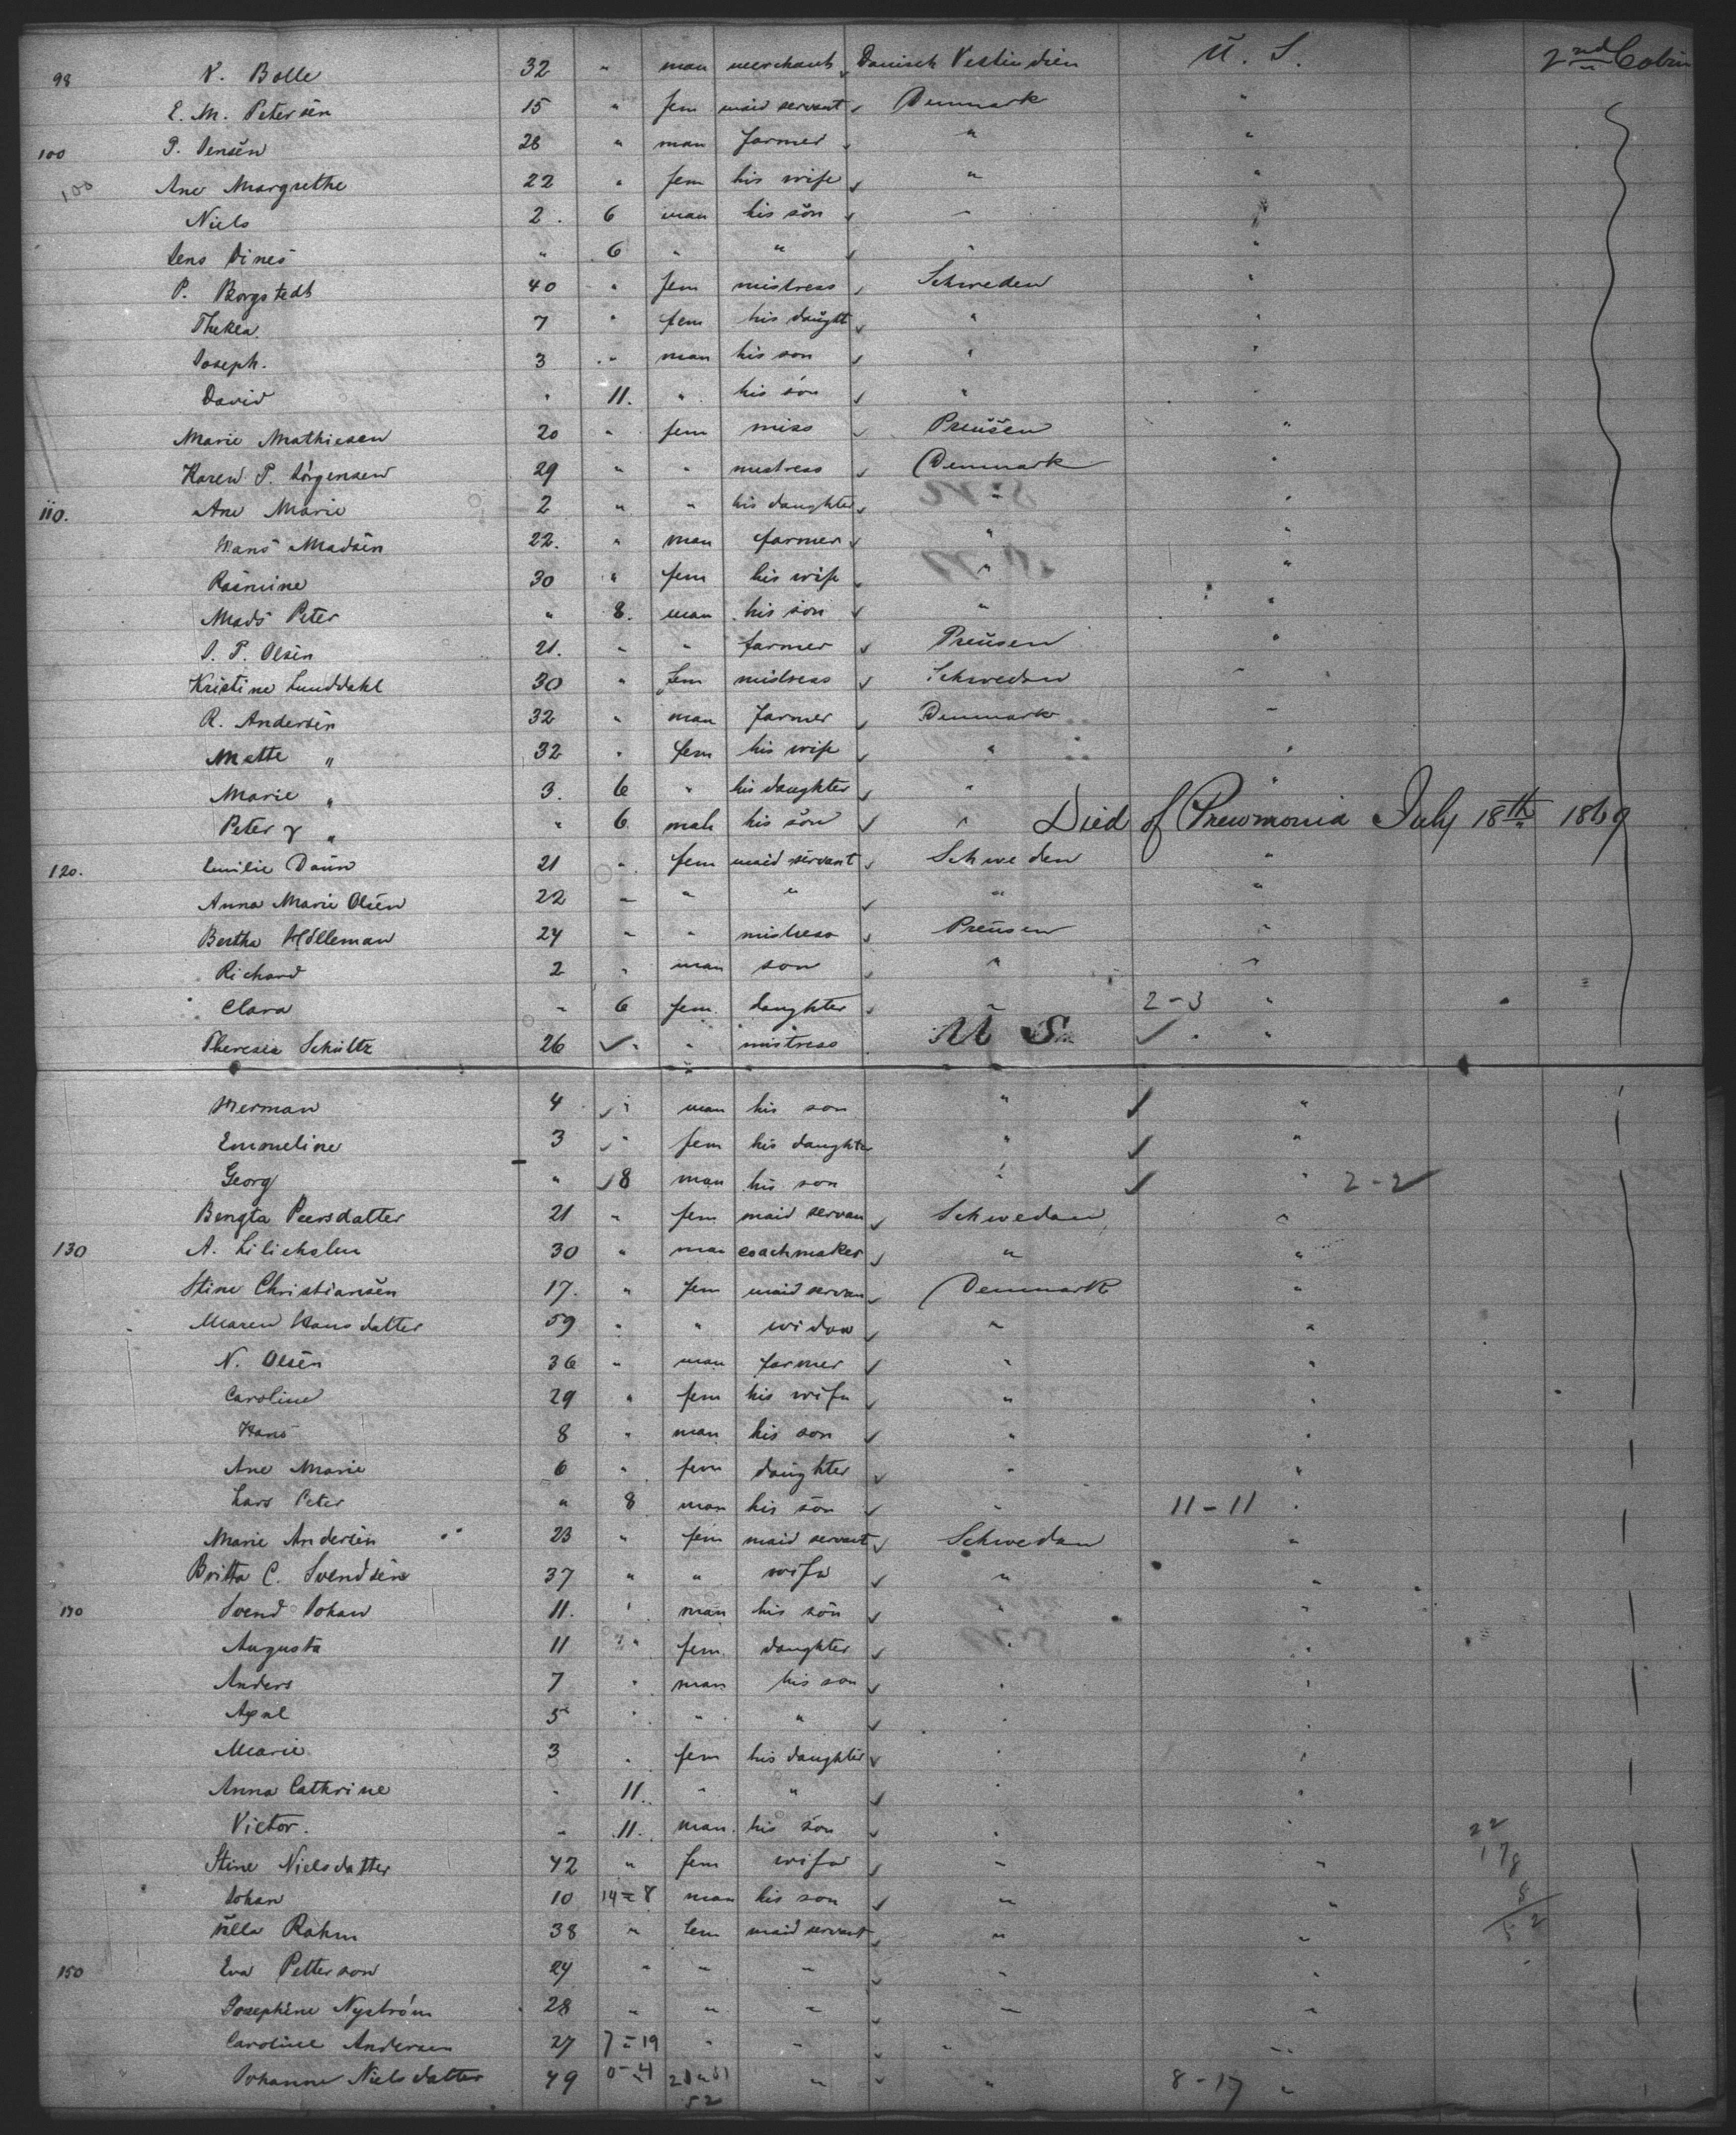 98 N. Bolle 32 " man merchant Danisch Vestindien U. S. 2nd Cabin
E. M. Petersen 15 " fem maid servant Denmark "
100 P. Jensen 28 " man farmer " "
100 Ane Margrethe 22 " fem his wife " "
Niels 2. 6 man his son " "
Jens Dines " 6 " " " "
P. Borgstedt 40 " fem mistress Schweden "
Thekea 7 " fem his daugtt " "
Joseph. 3 " man his son " "
David " 11. " his son " "
Marie Mathiesen 20 " fem miss Preussen "
Karen P. Jörgensen 29 " " mistress Denmark "
110. Ane Marie 2 " " his daughter " "
Hans Madsen 22. " man farmer " "
Rasmine 30 " fem his wife " "
Mads Peter " 8. man his son " "
J. P. Olsen 21. " " farmer Preusen "
Kristine Lunddahl 30 " fem mistress Schweden "
R. Andersen 32 " man farmer Denmark "
Mette " 32 " fem his wife " "
Marie " 3. 6 " his daughter " "
Peter " " 6 male his son " Died of Pneumonia July 18th 1869
120. Emilie Daun 21 " fem maid servant Schweden "
Anna Marie Olsen 22 " " " " "
Bertha Hölleman 24 " " mistress Preusen "
Richard 2 " man son " "
Clara " 6 fem. daughter " 2-3 "
Theresia Schultz 26 " " mistress U S "
Herman 4 " man his son " "
Emmeline 3 " fem his daughter " "
Georg " 8 man his son " " 2-2
Bengta Peersdatter 21 " fem maid servan Schweden "
130 A. Lilieholm 30 " man coachmaker " "
Stine Christiansen 17. " fem maid servan Denmark "
Maren Hansdatter 59 " " widow " "
N. Olsen 36 " man farmer " "
Caroline 29 " fem his wife " "
Hans 8 " man his son " "
Ane Marie 6 " fem daughter " "
Lars Peter " 8 man his son " 11-11 "
Marie Andersen 23 " fem maid servant Schweden "
Britta C. Svendsen 37 " " wife " "
140 Svend Johan 11. " man his son " "
Augusta 11 " fem. daughter " "
Anders 7 " man his son " "
Axel 5 " " " " "
Marie 3 " fem his daughter " "
Anna Cathrine " 11. " " " "
Victor. " 11. man. his son " " 22
Stine Nielsdatter 42 " fem wife " " 178
Johan 10 14=8 man his son " " 8
Ulla Rahm 38 " fem maid servant " " 52
150 Eva Petterson 24 " " " " "
Josephine Nyström 28 " " " " "
Caroline Andersen 27 7=19 " " " "
Johanne Nielsdatter 49 0-4 " " 8-17 "
52